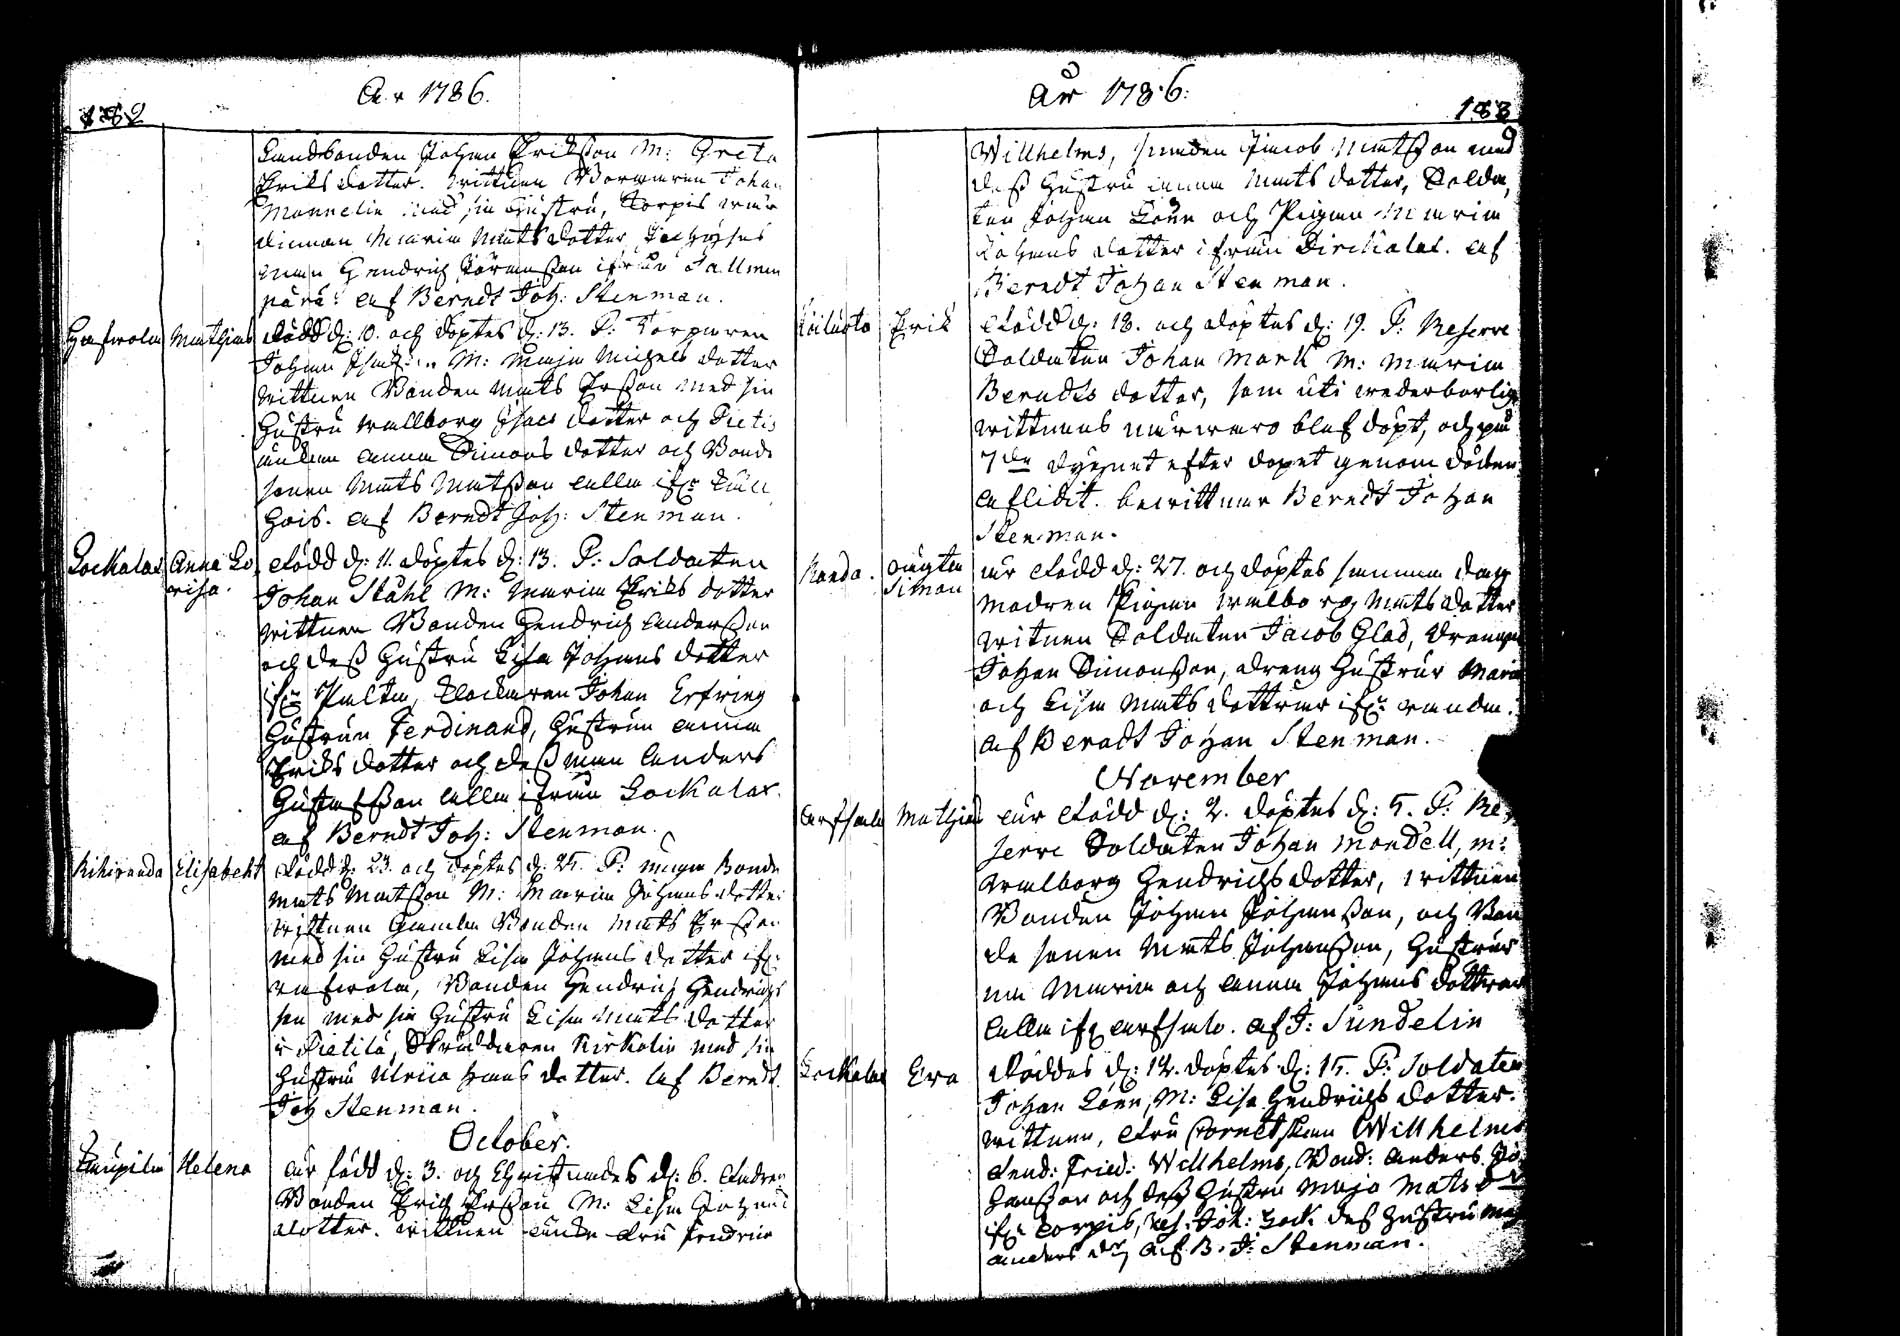 182
År 1786.
Landbonden Johan Erikßon M: Greta
Eriks dotter. wittnen Borgaren Johan
Monnelin med sin Hustru, Torpis
Maria Mats dotter
man Hendrich ifrån Sallmen
pärä: af Berndt Joh: Stenman.
Mathias Född d: 10. och döptes d: 13. F: Torparen
Johan M: Maja Michels dotter
wittnen Bonden Mats Erßon med sin
Hustru Wallborg Isacs dotter och Pietis
Anna Simons dotter och Bonde
sonen Mats Matßon alla ifr:
hois. af Berndt Joh: Stenman.
Lockalax Anna Lo Född d: 11. döptes d: 13. F: Soldaten
visa. Johan Ståhl M: Maria Eriks dotter
wittnen Bonden Hendrich Anderßon
och deß Hustru Lisa Johans dotter
ifr: Palta, Klockaren Johan Erfving
Hustrun Ferdinand, Hustrun Anna
Eriks dotter och deß man Anders
Gustafßon alla ifrån Lockalax.
af Berndt Joh: Stenman.
Kihiranda Elisabeht Född d: 23. och döptes d: 25. F: unga Bonde
Mats Matßon M: Maria Johans dotter
wittnen Gamla Bonden Mats Erßon
med sin Hustru Lisa Johans dotter ifr:
Bonden Hendrich Hendrichs
son med sin Hustru Lisa Mats dotter
i Pietilä, Skräddaren Kirkolin med sin
Hustru Ulrica Hans dotter. af Berndt
Joh Stenman.
October.
Helena är född d: 3. och Christnades d: 6. Fadren
Bonden Erich Erßon M: Lisa Johans
dotter. wittnen Fru Fendrich
År 1786:
183
Willhelms, Jacob Matßon med
deß Hustru Anna Mats dotter, Solda,
ten Johan Löen och Pigan Maria
Johans dotter ifrån Dirikalax. af
Berndt Johan Stenman.
Erik Född d: 18. och döptes d: 19. F: Reserve
Soldaten Johan Mark M: Maria
Berndts dotter, som uti wederbörlig
wittnens närwaro blef döpt, och på
7de dygnet efter dopet genom döden
aflidit. bewittnar Berndt Johan
Stenman.
Randa. oägta är Född d: 27. och döptes samma dag
Simon Modren Pigan Walborg Mats dotter
witnen Soldaten Jacob Glad, Drengen
Johan Simonßon, dreng Hustrur Maria
och Lisa Mats dottrar ifr: randa.
af Berndt Johan Stenman.
November
Arfsalo Mathias är Född d: 2. döptes d: 5. F: Re
serve Soldaten Johan Mondell, M:
Walborg Hendrichs dotter, wittnen
Bonden Johan Johanßon, och Bon
de sonen Mats Johanßon, Hustrur
na Maria och Anna Johans dottrar
alla ifr arfsalo. af J: Sundelin
Lockalax Eva Föddes d: 12. döptes d: 15. F: Soldaten
Johan Löen, M: Lisa Hendrichs dotter.
wittnen, Fru Cornetskan Willhelms
Fend: Fried: Willhelms, Bond: Anders Jo
hanßon och deß Hustru Maja Mats dr
ifr: Torpis, Joh: Lock. des Hustru Maj
Anders dr af B. J: Stenman.